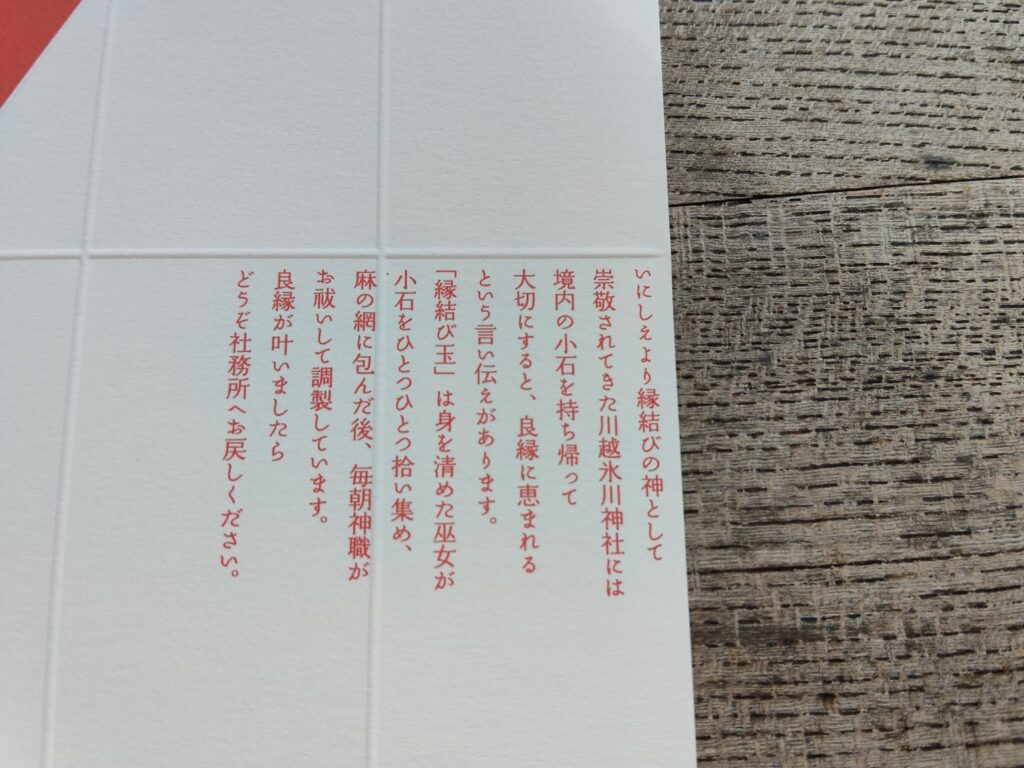 いにしえより縁結びの神として
崇敬されてきた川越氷川神社には
境内の小石を持ち帰って
大切にすると、良縁に恵まれる
という言い伝えがあります。
「縁結び玉」は身を清めた巫女が
小石をひとつひとつ拾い集め、
麻の網に包んだ後、毎朝神職が
お祓いして調製しています。
良縁が叶いましたら
どうぞ社務所へお戻しください。